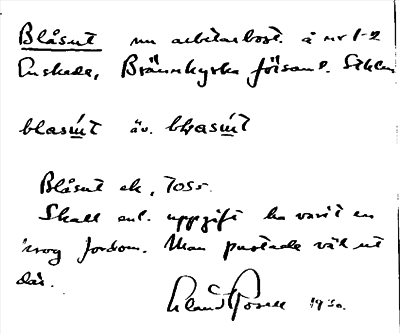 Blåsut nu arbetarbost. å nr 1-2
Enskede, Brännkyrka förs. Sthlm
blasút äv. blåsút
Blåsut ek, 7055.
Skall enl. uppgift ha varit en
krog fordom. Man pustade väl ut
där.
1930.